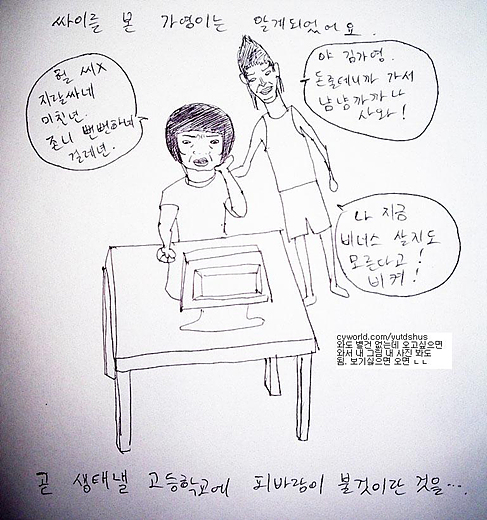 싸이를 본 가영이는 알게되었어요.
헐 씨X
지랄싸네
미친년.
존나 뻔뻔하네
걸레년.
야 김가영.
돈줄테니까 가서
냠냠까까나
사와!
나 지금
비너스 살지도
모른다고!
비켜!
cyworld.com/yutdshus
와도 별건 없는데 오고싶으면
와서 내 그림 내 사진 봐도
됨. 보기싫으면 오면 ㄴㄴ
곧 생태낼 고등학교에 피바람이 불것이란 것을...